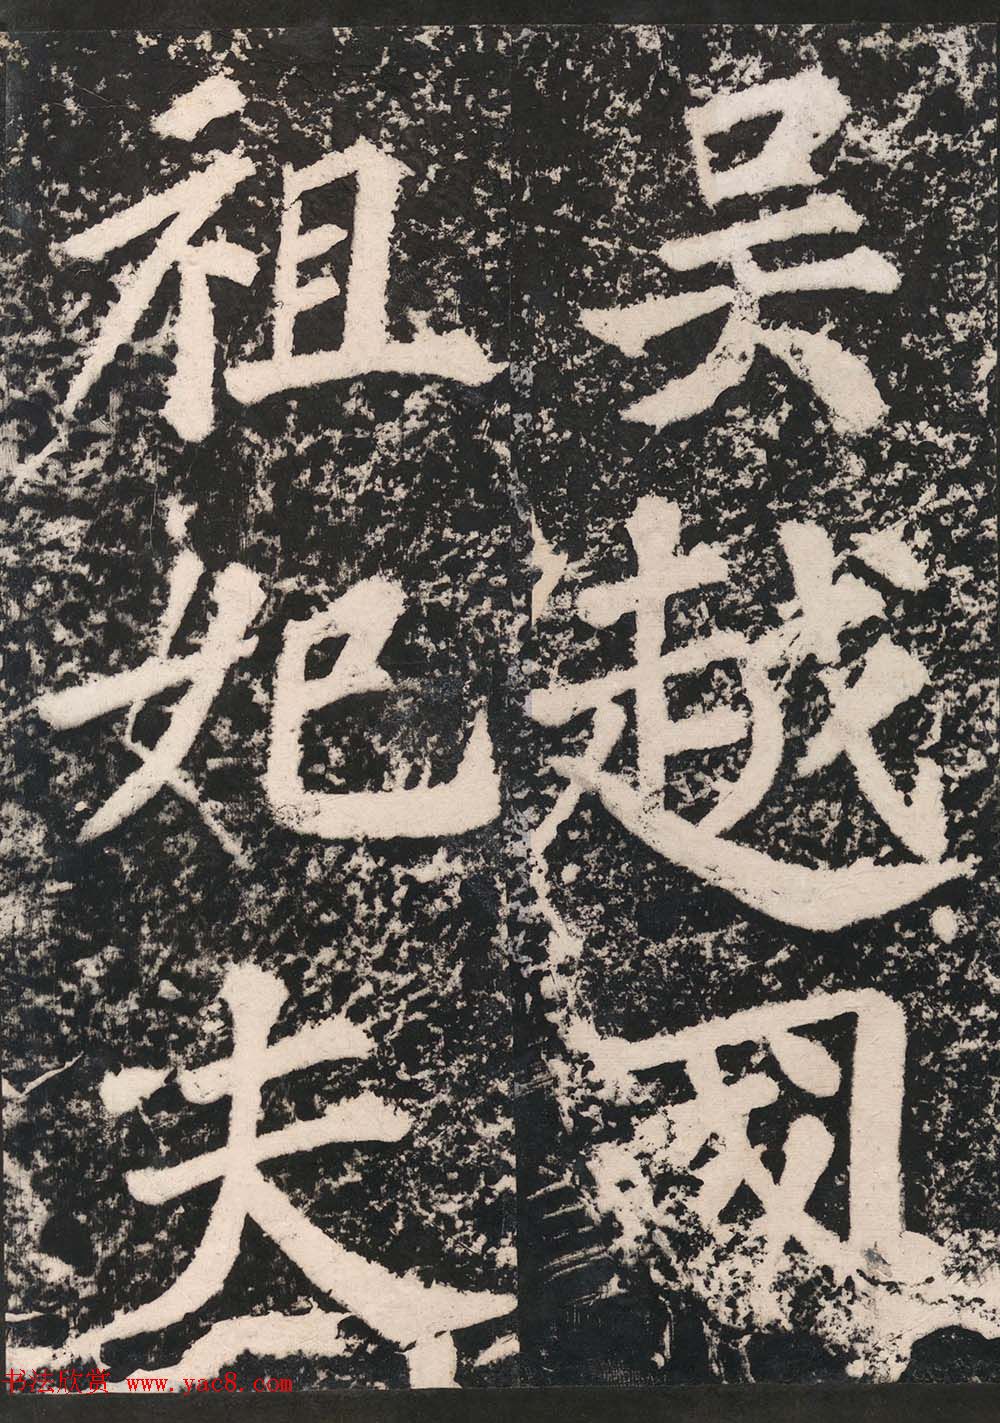 吴越國
祖妃夫
书法欣赏 www.yac8.com